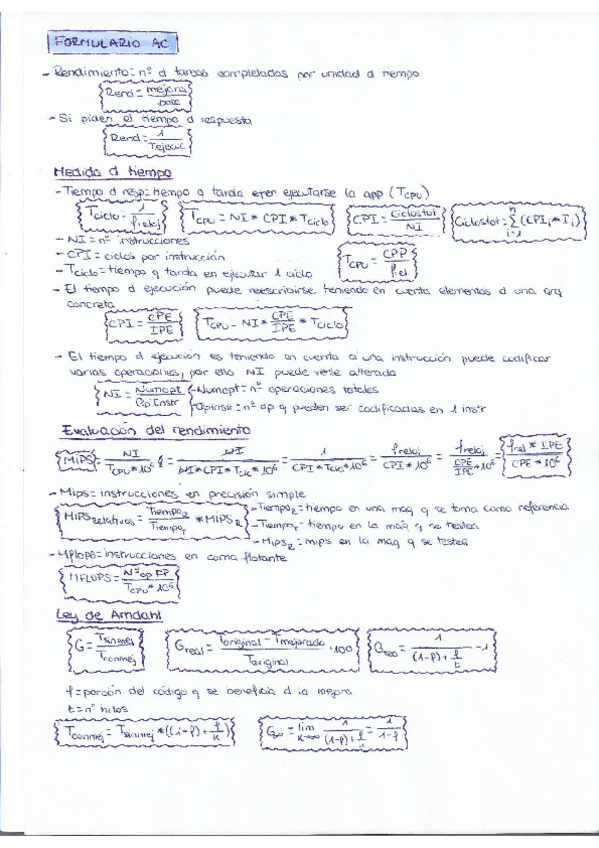 FORMULARIO AC
- Rendimiento = nº d tareas completadas por unidad d tiempo
Rend = mejora / base
- Si piden el tiempo d respuesta
Rend = 1 / Tejecuc
Medida d tiempo
- Tiempo d resp = tiempo q tarda en ejecutarse la app (TCPU)
Tciclo = 1 / freloj TCPU = NI * CPI * Tciclo CPI = Ciclostot / NI Ciclostot = Σ i=1 n (CPIi * Ii)
- NI = nº instrucciones
- CPI = ciclos por instrucción
- Tciclo = tiempo q tarda en ejecutar 1 ciclo
TCPU = CPP / fcl
- El tiempo d ejecución puede reescribirse teniendo en cuenta elementos d una arq
concreta
CPI = CPE / IPE TCPU = NI * CPE / IPE * Tciclo
- El tiempo d ejecución es teniendo en cuenta q una instrucción puede codificar
varias operaciones, por ello NI puede verse alterada
NI = Numopt / OpInstr - Numopt = nº operaciones totales
- Opinstr = nº op q pueden ser codificadas en 1 instr
Evaluación del rendimiento
MIPS = NI / TCPU * 10^6 = NI / NI * CPI * Tclk * 10^6 = 1 / CPI * Tclk * 10^6 = freloj / CPI * 10^6 = freloj / CPE / IPE * 10^6 = frel * IPE / CPE * 10^6
- Mips = instrucciones en precisión simple
MIPSrelativas = TiempoR / TiempoT * MIPSR - TiempoR = tiempo en una maq q se toma como referencia
- TiempoT = tiempo en la maq q se testea
- MIPSR = mips en la maq q se testea
- Mflops = instrucciones en coma flotante
MFLOPS = Nº op FP / TCPU * 10^6
Ley de Amdahl
G = Tsinmej / Tconmej Greal = Toriginal - Tmejorado / Toriginal · 100 = 1 / (1-f) + f / t - 1
f = porción del código q se beneficia d la mejora
t = nº hilos
Tconmej = Tsinmej * ((1-f) + f / k) G∞ = lim k→∞ 1 / (1-f) + f / k = 1 / 1-f